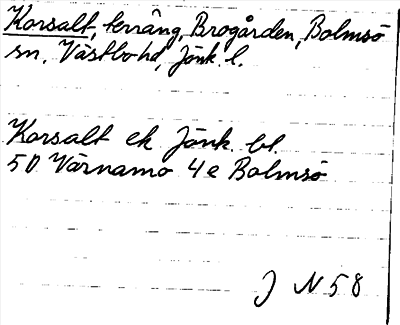 Korsalt, terräng, Brogården, Bolmsö
sn. Västbo hd, Jönk. l.
Korsalt ek Jönk. bl.
50 Värnamo 4e Bolmsö
J N 58